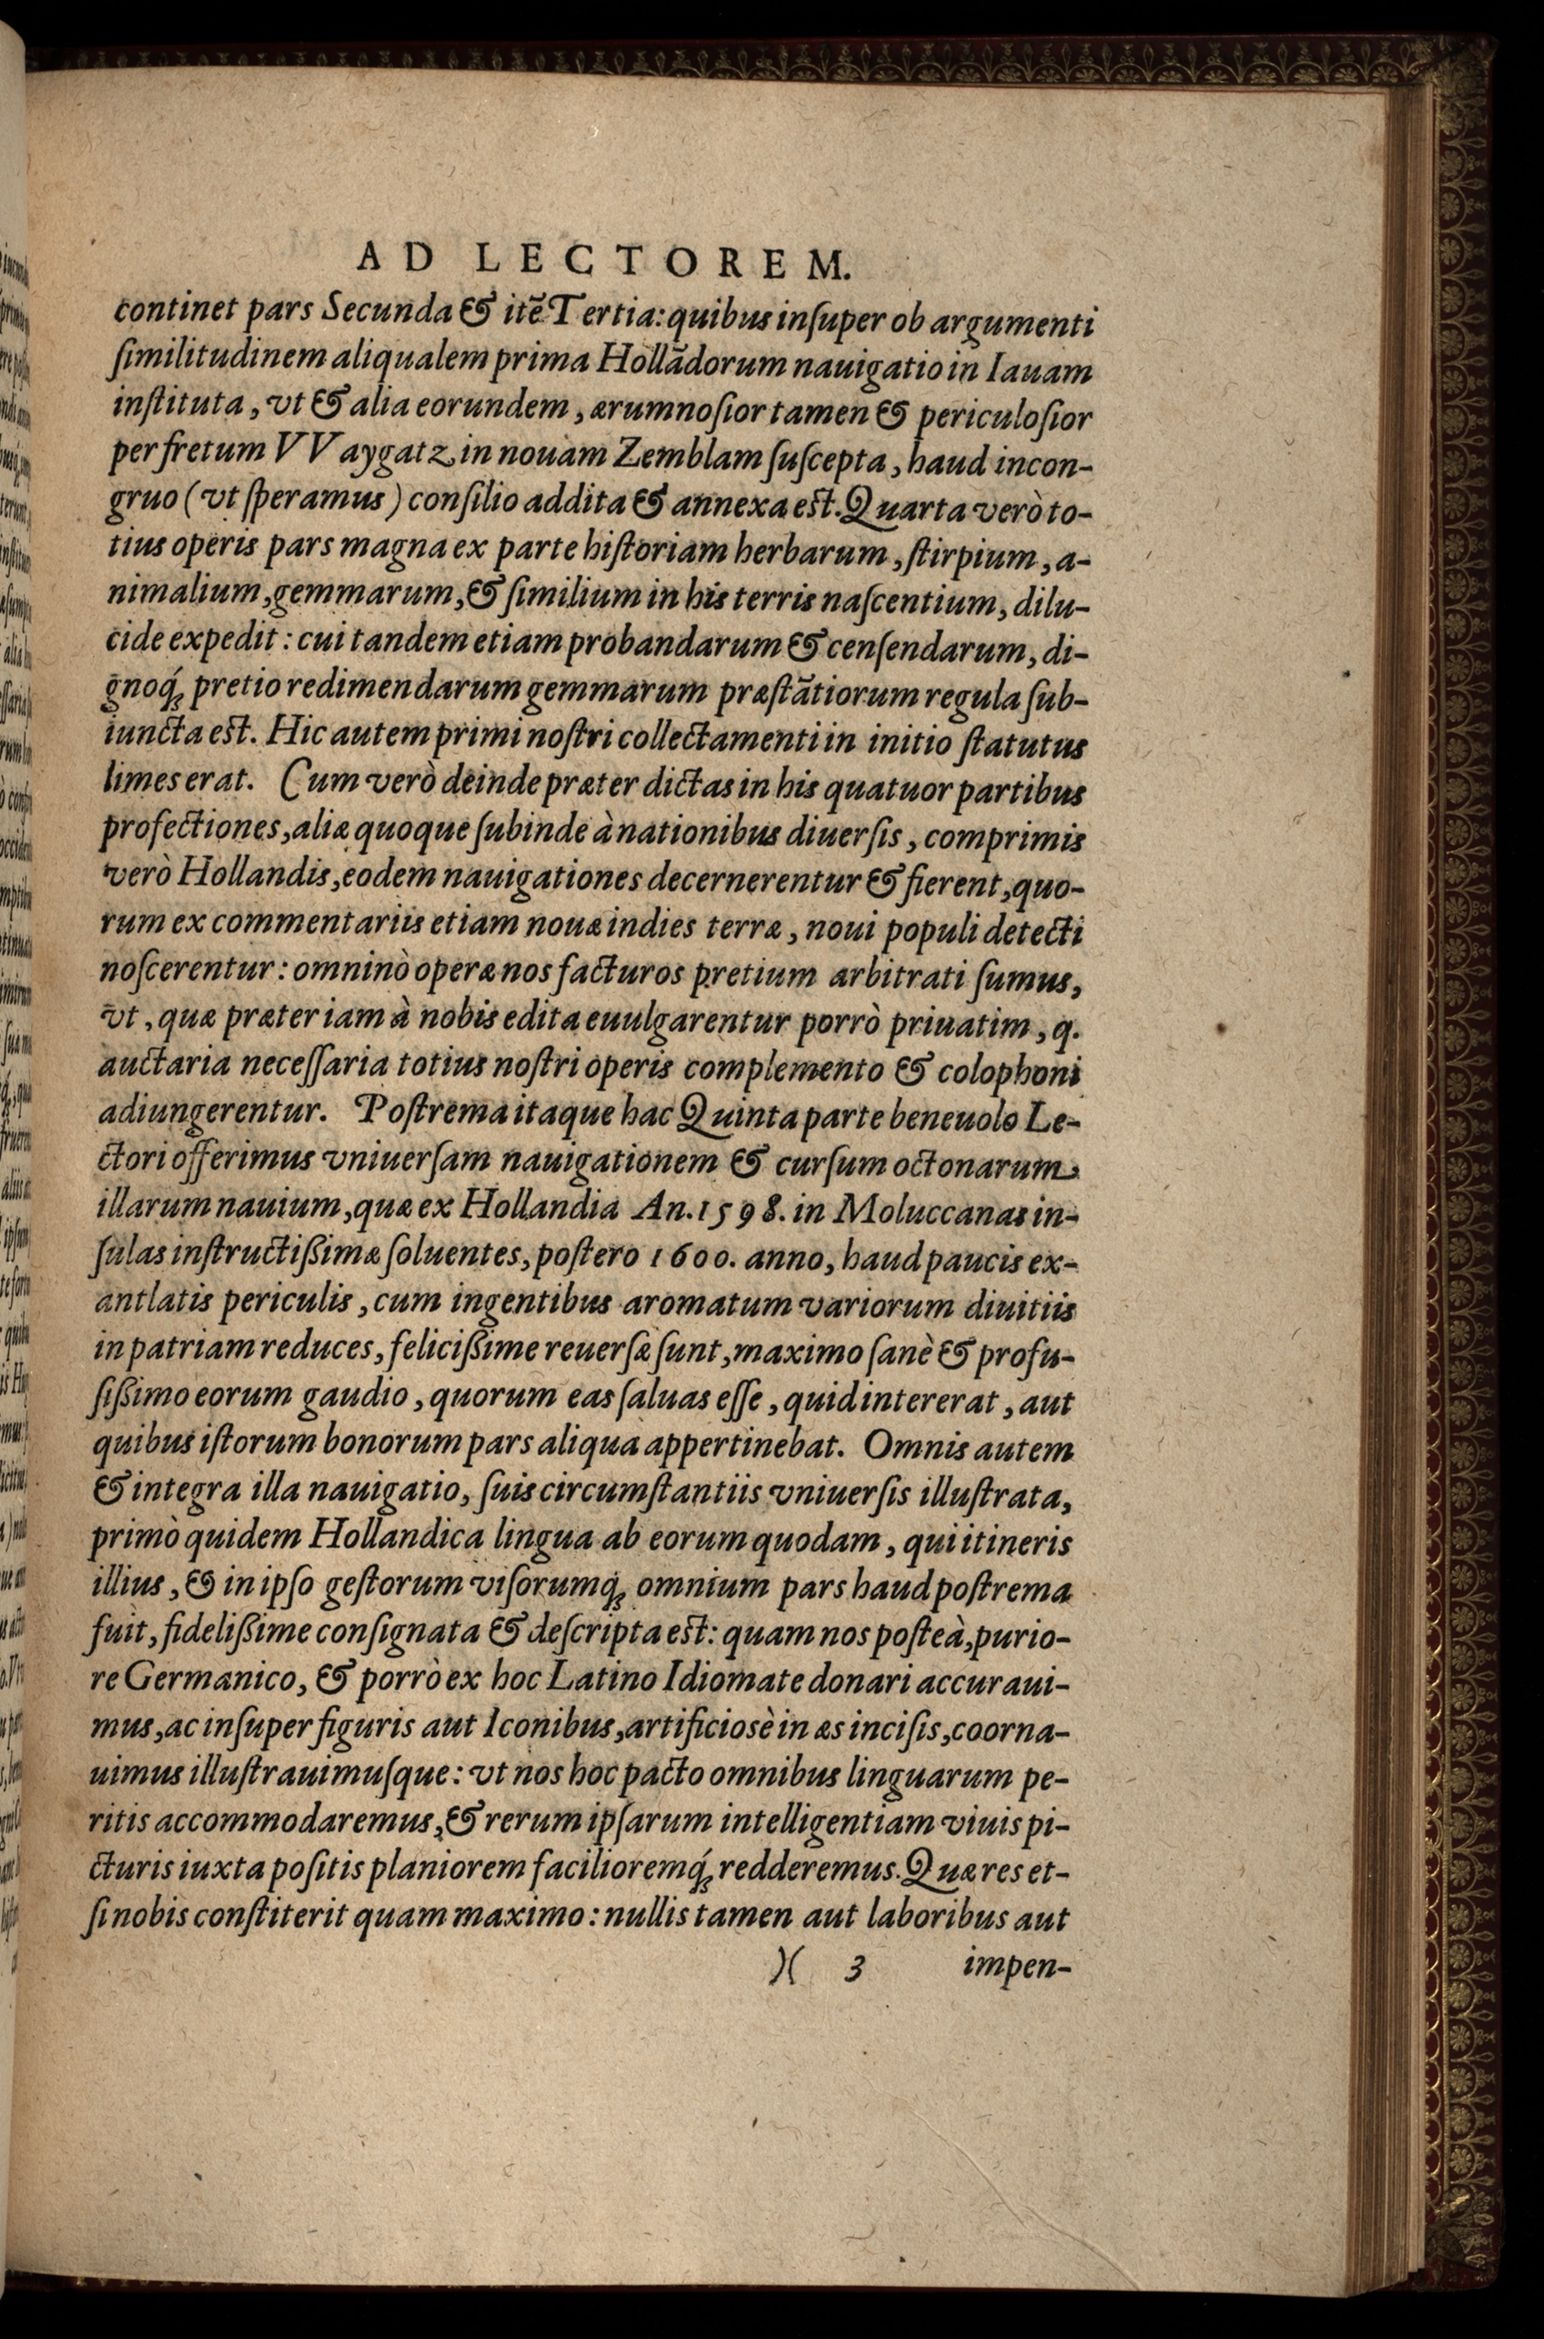 AD LECTOREM.
continet pars Secunda & itẽ Tertia: quibus inſuper ob argumenti
ſimilitudinem aliqualem prima Hollãdorum nauigatio in Iauam
inſtituta, vt & alia eorundem, ærumnoſior tamen & periculoſior
per fretum VVaygatz in nouam Zemblam ſuſcepta, haud incon-
gruo (vt ſperamus) conſilio addita & annexa est. Quarta verò to-
tius operis pars magna ex parte hiſtoriam herbarum, ſtirpium, a-
nimalium, gemmarum, & ſimilium in his terris naſcentium, dilu-
cide expedit: cui tandem etiam probandarum & cenſendarum, di-
gnoq́; pretio redimendarum gemmarum præſtãtiorum regula ſub-
iuncta est. Hic autem primi noſtri collectamenti in initio ſtatutus
limes erat. Cum verò deinde præter dictas in his quatuor partibus
profectiones, aliæ quoque ſubinde à nationibus diuerſis, comprimis
verò Hollandis, eodem nauigationes decernerentur & fierent, quo-
rum ex commentariis etiam nouæ indies terræ, noui populi detecti
noſcerentur: omninò operæ nos facturos pretium arbitrati ſumus,
vt, quæ præter iam à nobis edita euulgarentur porrò priuatim, q.
auctaria neceſſaria totius noſtri operis complemento & colophoni
adiungerentur. Poſtrema itaque hac Quinta parte beneuolo Le-
ctori offerimus vniuerſam nauigationem & curſum octonarum
illarum nauium, quæ ex Hollandia An. 1598. in Moluccanas in-
ſulas inſtructißimæ ſoluentes, poſtero 1600. anno, haud paucis ex-
antlatis periculis, cum ingentibus aromatum variorum diuitiis
in patriam reduces, felicißime reuerſæ ſunt, maximo ſanè & profu-
ſißimo eorum gaudio, quorum eas ſaluas eſſe, quid intererat, aut
quibus iſtorum bonorum pars aliqua appertinebat. Omnis autem
& integra illa nauigatio, ſuis circumſtantiis vniuerſis illuſtrata,
primò quidem Hollandica lingua ab eorum quodam, qui itineris
illius, & in ipſo geſtorum viſorumq́; omnium pars haud poſtrema
fuit, fidelißime conſignata & deſcripta est: quam nos poſteà, purio-
re Germanico, & porrò ex hoc Latino Idiomate donari accuraui-
mus, ac inſuper figuris aut Iconibus, artificiosè in æs inciſis, coorna-
uimus illuſtrauimuſque: vt nos hoc pacto omnibus linguarum pe-
ritis accommodaremus, & rerum ipſarum intelligentiam viuis pi-
cturis iuxta poſitis planiorem facilioremq́; redderemus. Quæ res et-
ſi nobis conſtiterit quam maximo: nullis tamen aut laboribus aut
)( 3 impen-